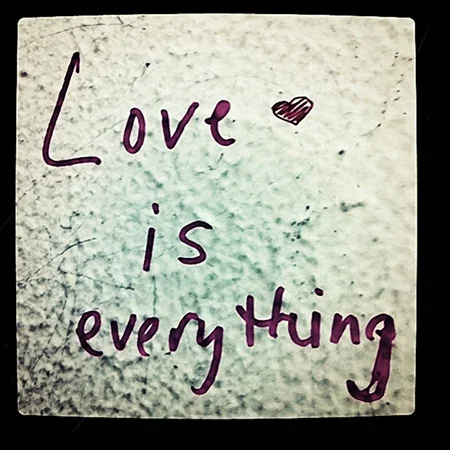 Love
is
everything